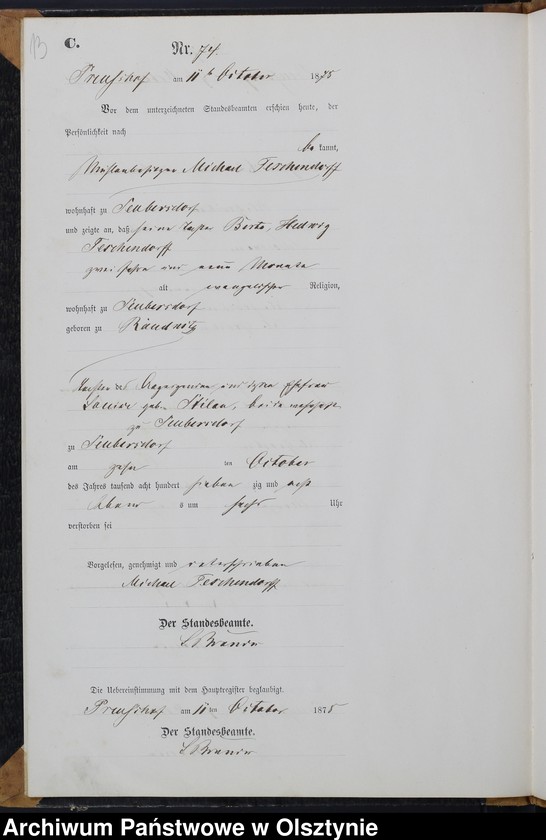 13
C.
Nr. 74.
am 11ten October 1875
Vor dem unterzeichneten Standesbeamten erschien heute, der
Persönlichkeit nach
be kannt,
Michael Teschendorff
wohnhaft zu Seubersdorf
und zeigte an, daß seine Tochter Berta, Hedwig
Teschendorff
zwei Jahre und neun Monate
alt evangelischer Religion,
wohnhaft zu Seubersdorf
geboren zu Raudnitz
Tochter des und Ehefrau
Louise geb. beide wohnhaft
zu Seubersdorf
zu Seubersdorf
am zehn ten October
des Jahres tausend acht hundert sieben zig und
Abend s um sechs Uhr
verstorben sei
Vorgelesen, genehmigt und unterschrieben
Michael Teschendorff
Der Standesbeamte.
Die Uebereinstimmung mit dem Hauptregister beglaubigt.
am 11 ten October 1875
Der Standesbeamte.
Archiwum Państwowe w Olsztynie